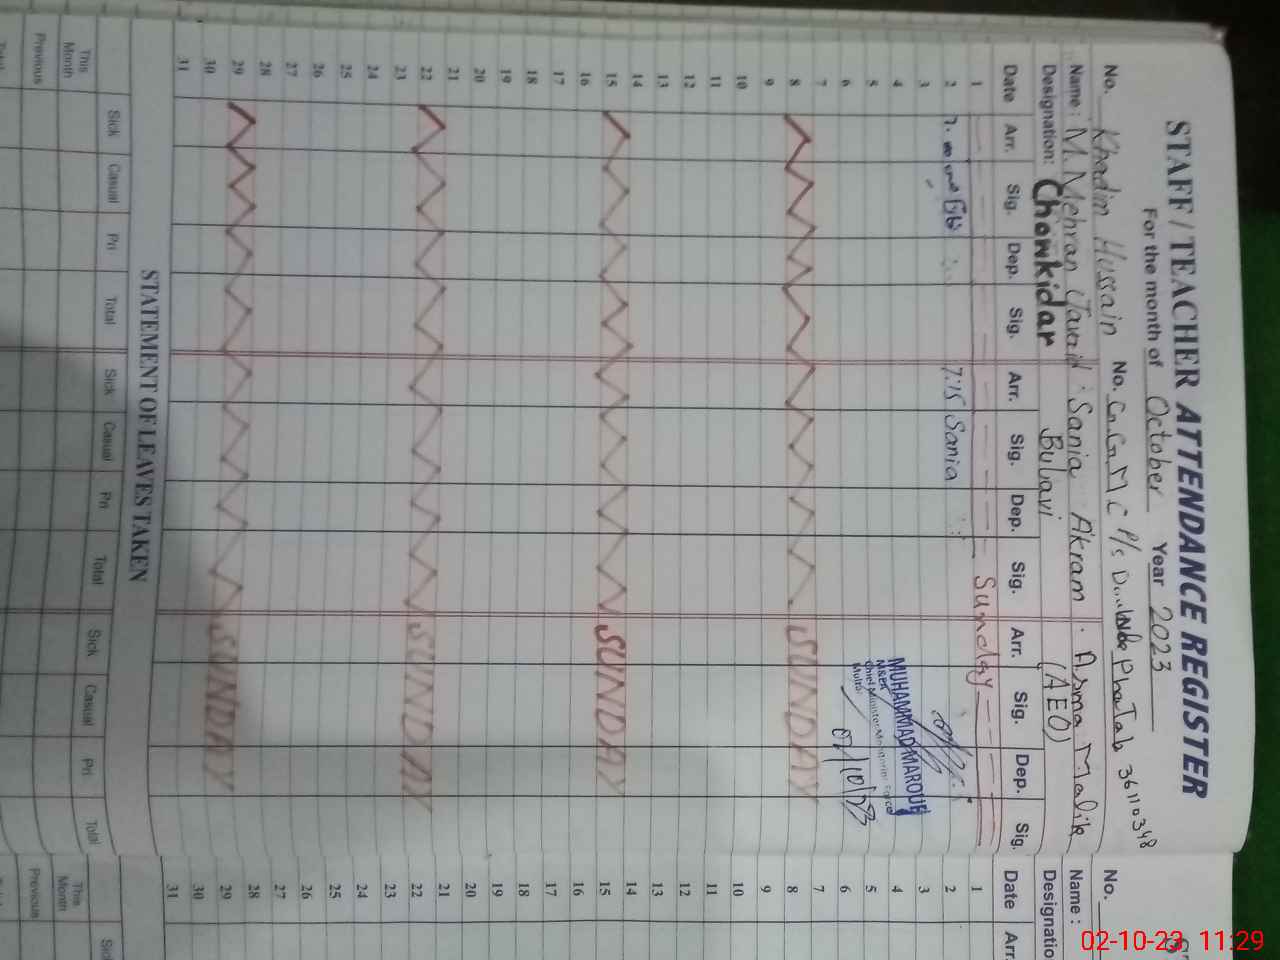 STAFF / TEACHER ATTENDANCE REGISTER
For the month of October Year 2023
No. Khadim Hussain No. G.G.M.C P/s 36110348
Name : M. Mehran Javaid Sania Akram Asma Malik
Designation: Chowkidar Bubavi (AEO)
Date Arr. Sig. Dep. Sig. Arr. Sig. Dep. Sig. Arr. Sig. Dep. Sig.
1 Sunday
2 7:15 Sania
3
4 MUHAMMAD MAROUF
5 M&EA Chief Minister Monitoring Force
6 Multan 02/10/23
7
8 SUNDAY
9
10
11
12
13
14
15 SUNDAY
16
17
18
19
20
21
22 SUNDAY
23
24
25
26
27
28
29 SUNDAY
30
31
STATEMENT OF LEAVES TAKEN
Sick Casual Pri Total Sick Casual Pri Total Sick Casual Pri Total
This Month
Previous
Total
No.
Name :
Designatio
Date Arr.
1
2
3
4
5
6
7
8
9
10
11
12
13
14
15
16
17
18
19
20
21
22
23
24
25
26
27
28
29
30
31
This Month
Previous
02-10-23 11:29